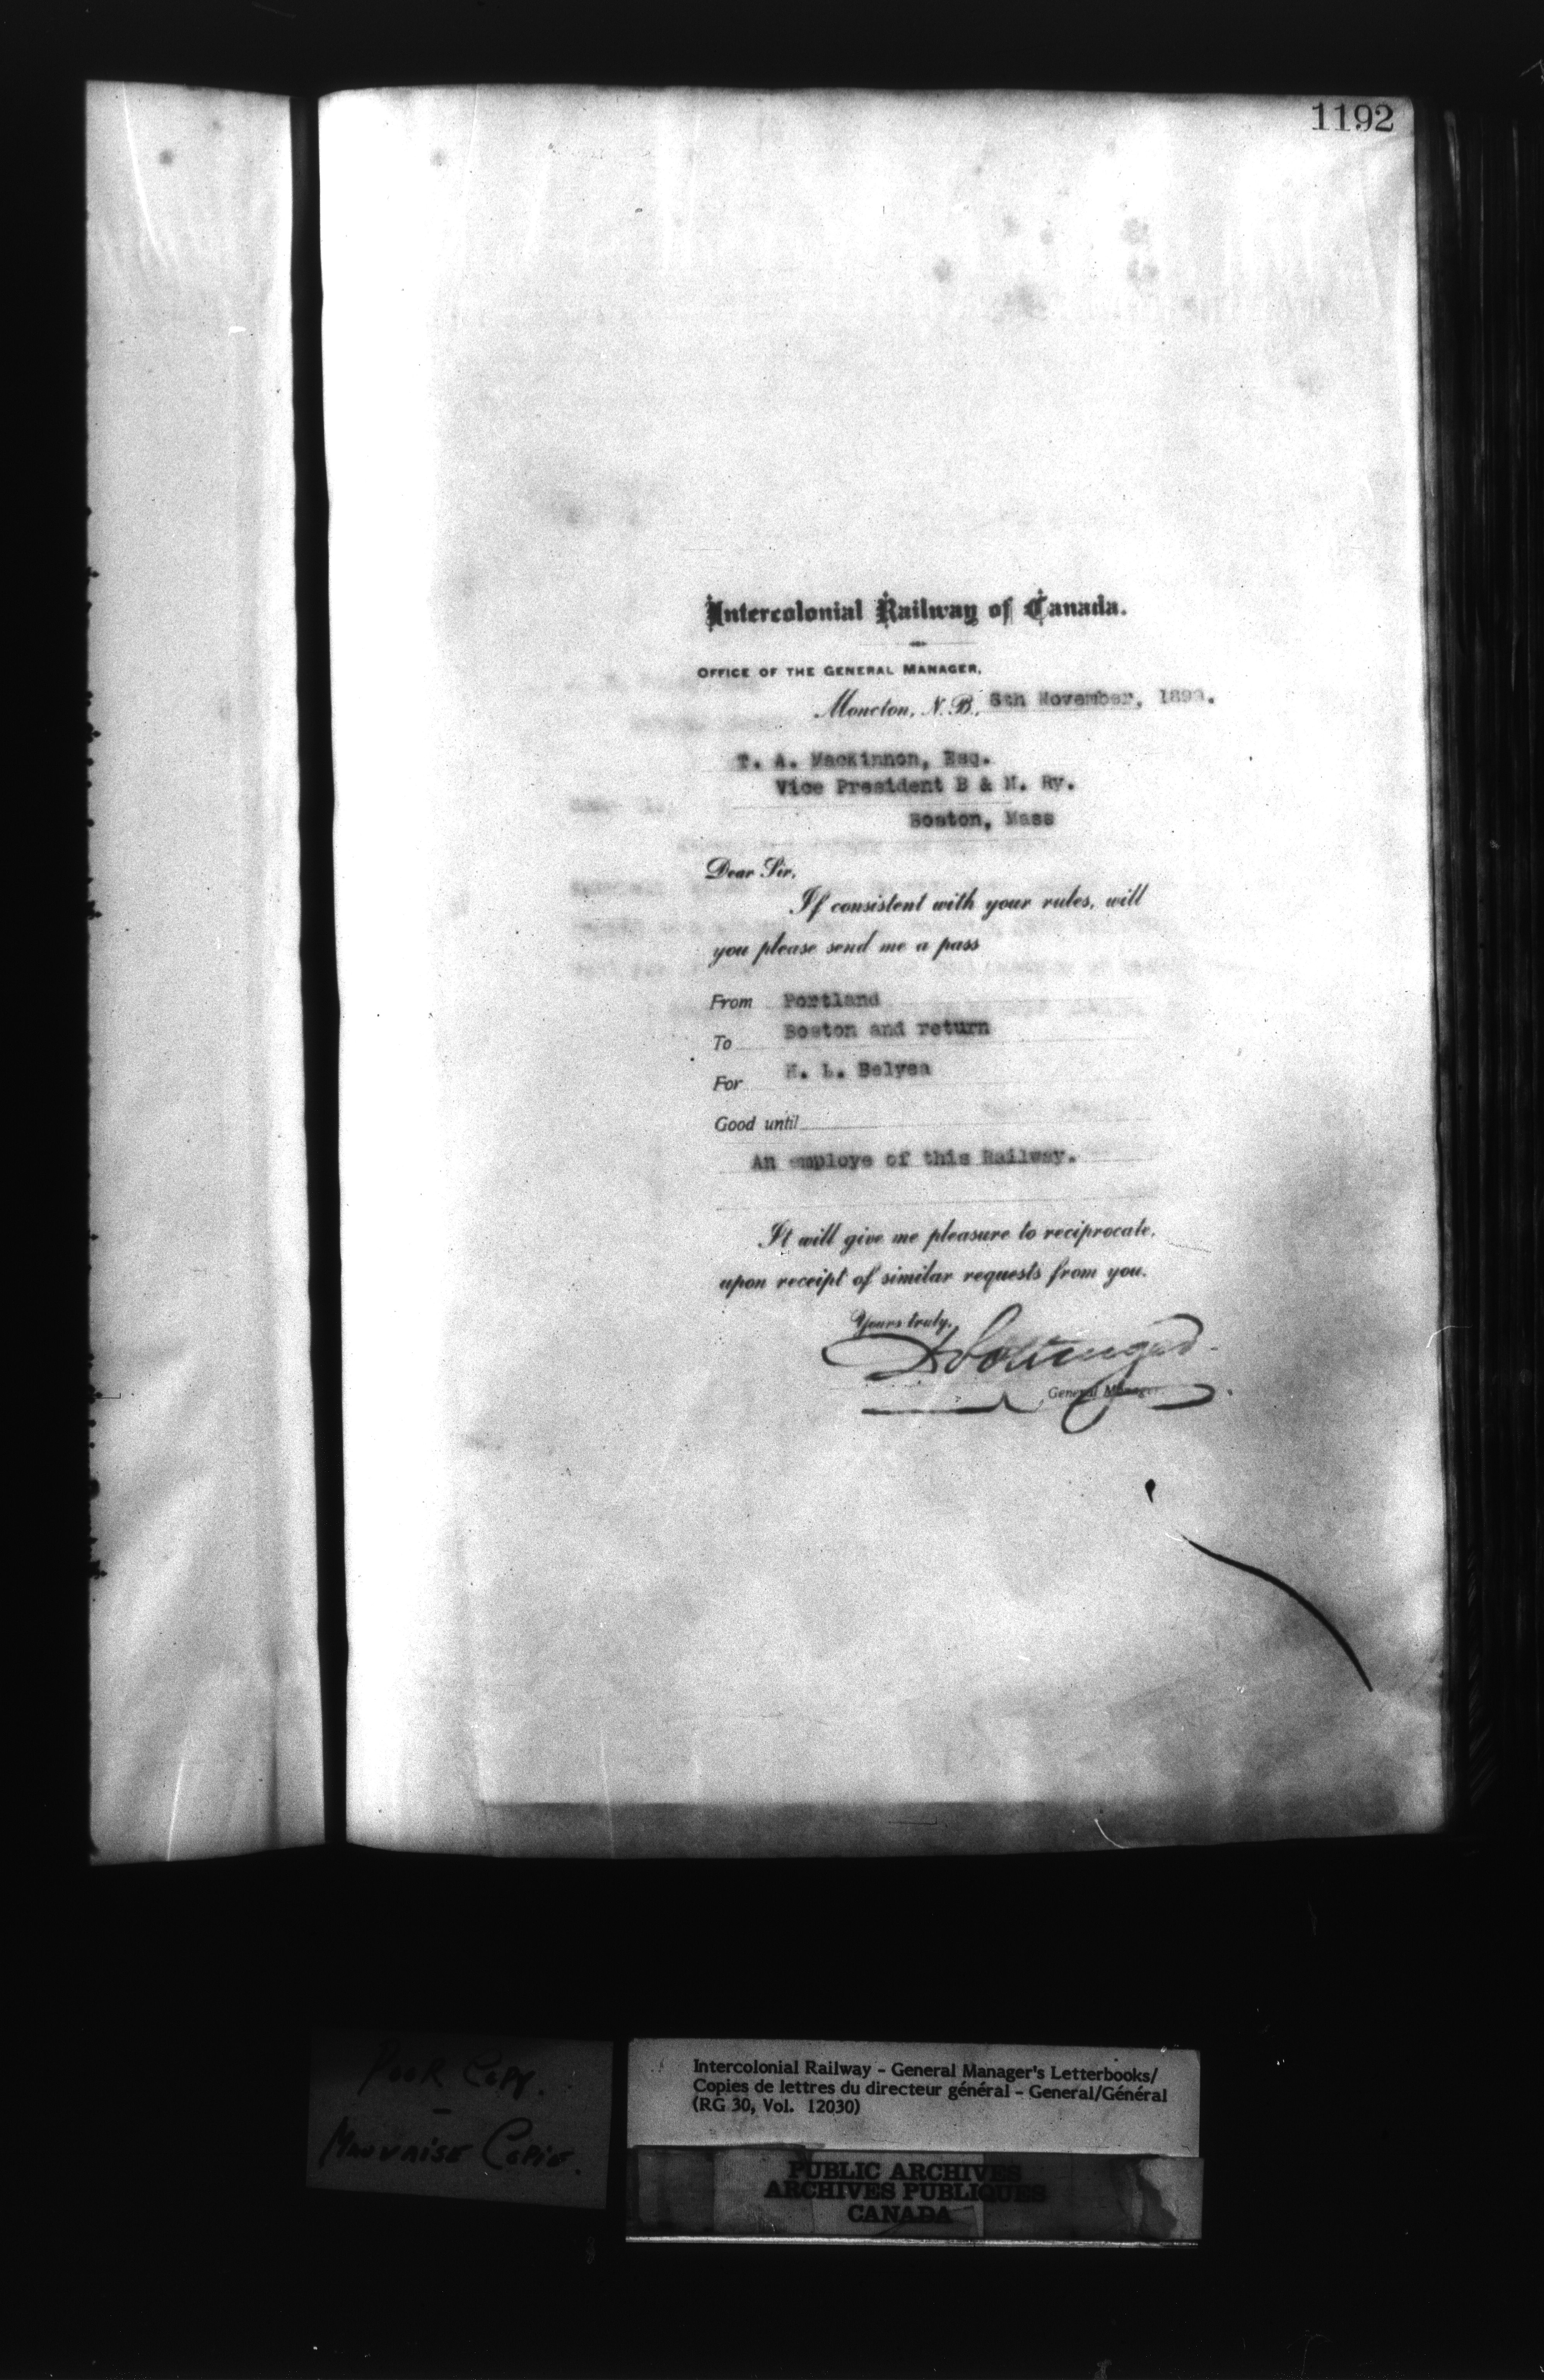 1192
Intercolonial Railway of Canada.
OFFICE OF THE GENERAL MANAGER.
Moncton, N. B., 6th November, 1899.
T. A. MacKinnon, Esq.
Vice President B & M. Ry.
Boston, Mass
Dear Sir,
If consistent with your rules, will
you please send me a pass
From Portland
To Boston and return
For H. L. Belyea
Good until
An employe of this Railway.
It will give me pleasure to reciprocate,
upon receipt of similar requests from you.
Yours truly,
D Pottinger
General Manager.
Poor Copy.
Mauvaise Copie.
Intercolonial Railway - General Manager's Letterbooks/
Copies de lettres du directeur général - General/Général
(RG 30, Vol. 12030)
PUBLIC ARCHIVES
ARCHIVES PUBLIQUES
CANADA